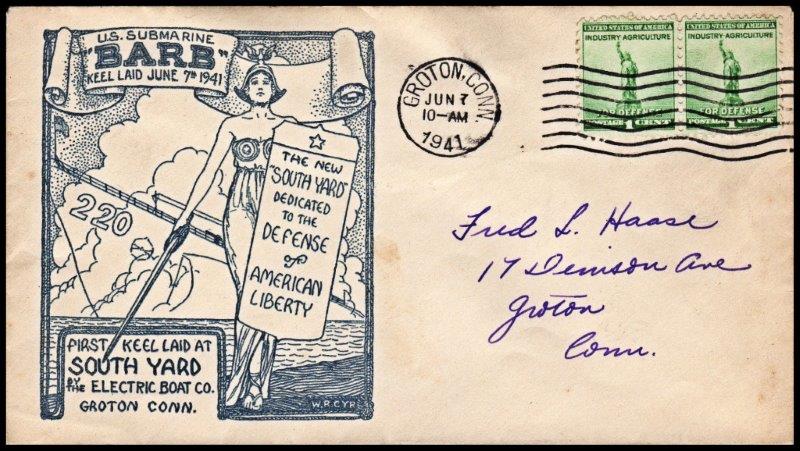 U.S. SUBMARINE
"BARB"
KEEL LAID JUNE 7TH 1941
220
THE NEW
"SOUTH YARD"
DEDICATED
TO THE
DEFENSE
OF
AMERICAN
LIBERTY
FIRST KEEL LAID AT
SOUTH YARD
BY THE ELECTRIC BOAT CO.
GROTON CONN.
W.R.CYR
GROTON, CONN.
JUN 7
10-AM
1941
UNITED STATES OF AMERICA
INDUSTRY·AGRICULTURE
FOR DEFENSE
POSTAGE 1 CENT
UNITED STATES OF AMERICA
INDUSTRY·AGRICULTURE
FOR DEFENSE
POSTAGE 1 CENT
Fred L. Haase
17 Denison Ave
Groton
Conn.